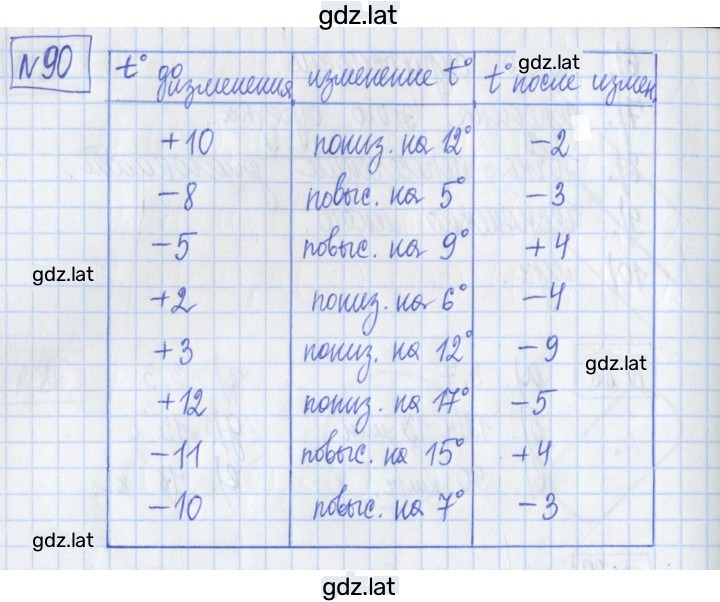 gdz.lat
№90
t° до изменения изменение t° t° после измен.
gdz.lat
+10 пониз. на 12° −2
−8 повыс. на 5° −3
−5 повыс. на 9° +4
gdz.lat
+2 пониз. на 6° −4
+3 пониз. на 12° −9
gdz.lat
+12 пониз. на 17° −5
−11 повыс. на 15° +4
−10 повыс. на 7° −3
gdz.lat
gdz.lat